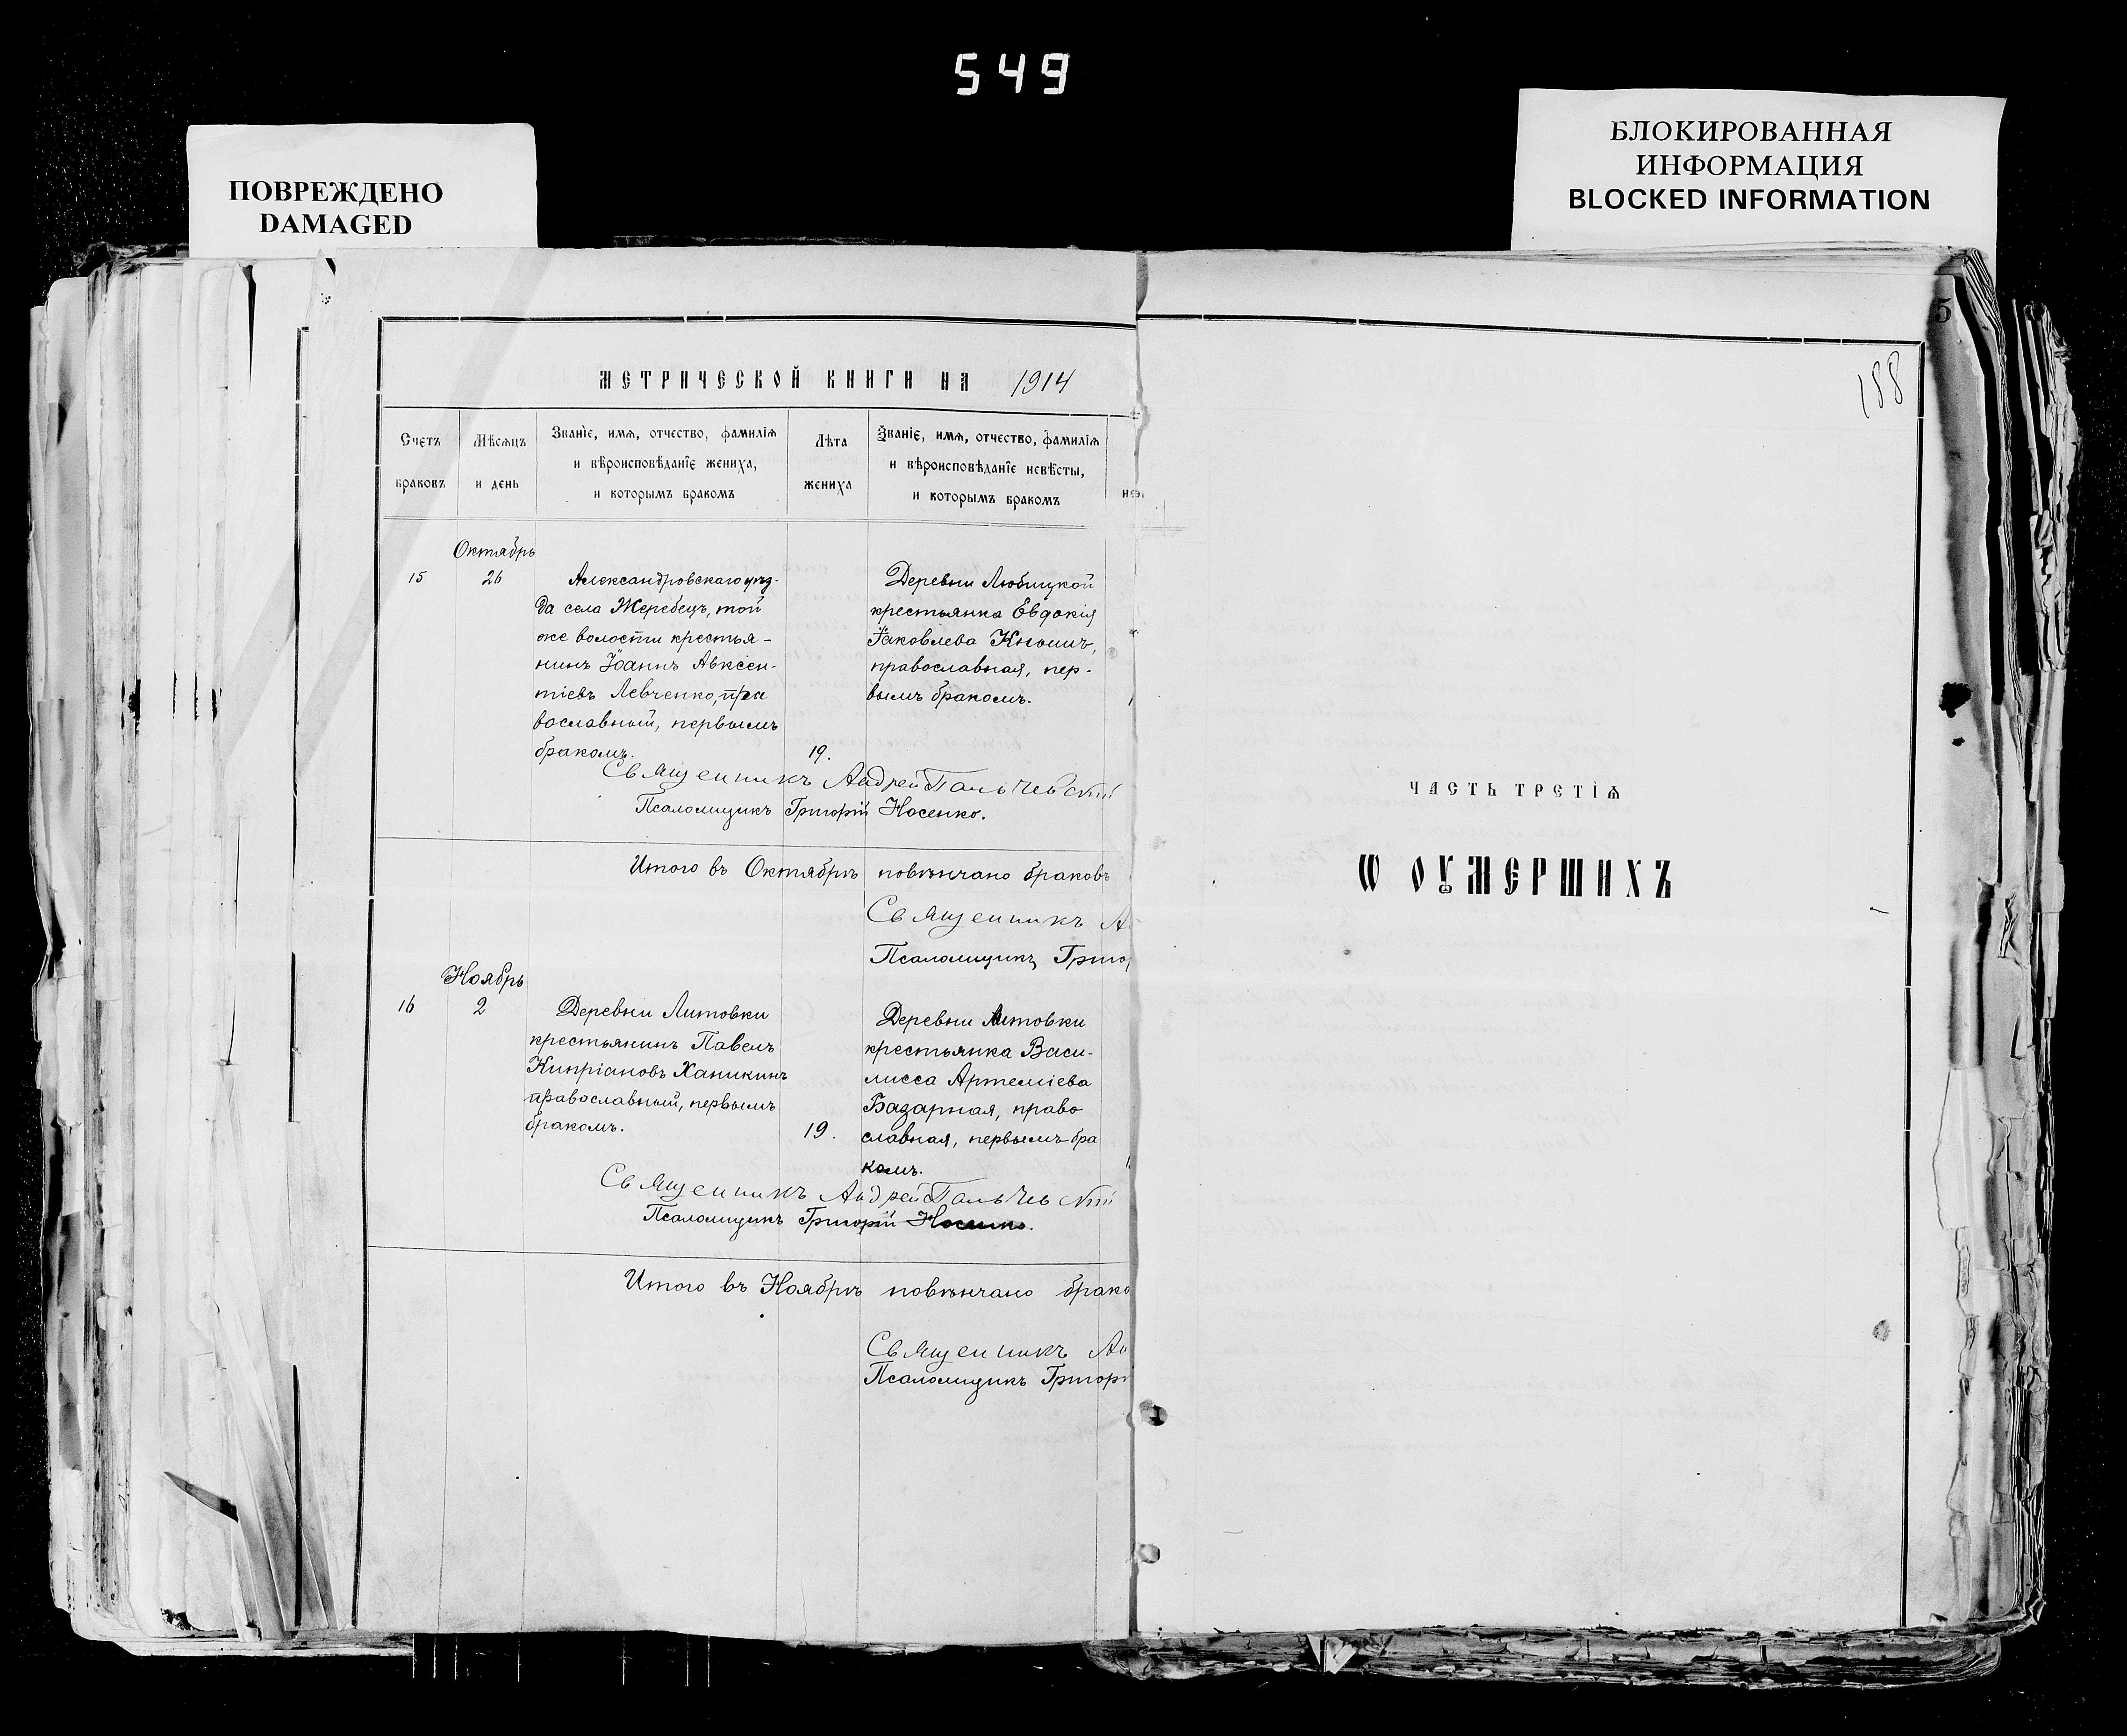 549
ПОВРЕЖДЕНО
DAMAGED
БЛОКИРОВАННАЯ
ИНФОРМАЦИЯ
BLOCKED INFORMATION
МЕТРИЧЕСКОЙ КНИГИ НА 1914
Счетъ
браковъ
Мѣсяцъ
и день
Званїе, имѧ, отчество, фамилїѧ
и вѣроисповѣданїе жениха,
и которымъ бракомъ
Лѣта
жениха
Званїе, имѧ, отчество, фамилїѧ
и вѣроисповѣданїе невѣсты,
и которымъ бракомъ
Октябрь
15
26
Александровскаго уѣз-
да села Жеребецъ, той
же волости крестья-
нинъ Іоаннъ Авксен-
тіевъ Левченко, пра
вославный, первымъ
бракомъ.
19.
Деревни Любицкой
крестьянка Евдокія
Іаковлева Кнышъ,
православная, пер-
вымъ бракомъ.
Священникъ Андрей Пальчевскій
Псаломщикъ Григорій Носенко.
Итого въ Октябрѣ повѣнчано браковъ
Священникъ А
Псаломщикъ Григо
Ноябрь
16
2
Деревни Литовки
крестьянинъ Павелъ
Кипріановъ Ханикинъ
православный, первымъ
бракомъ.
19.
Деревни Литовки
крестьянка Васи-
лисса Артеміева
Базарная, право
славная, первымъ бра
комъ.
Священникъ Андрей Пальчевскій
Псаломщикъ Григорій Носенко.
Итого въ Ноябрѣ повѣнчано брако
Священникъ Ан
Псаломщикъ Григор
5
188
ЧАСТЬ ТРЕТІѦ
Ѡ ОУМЕРШИХЪ